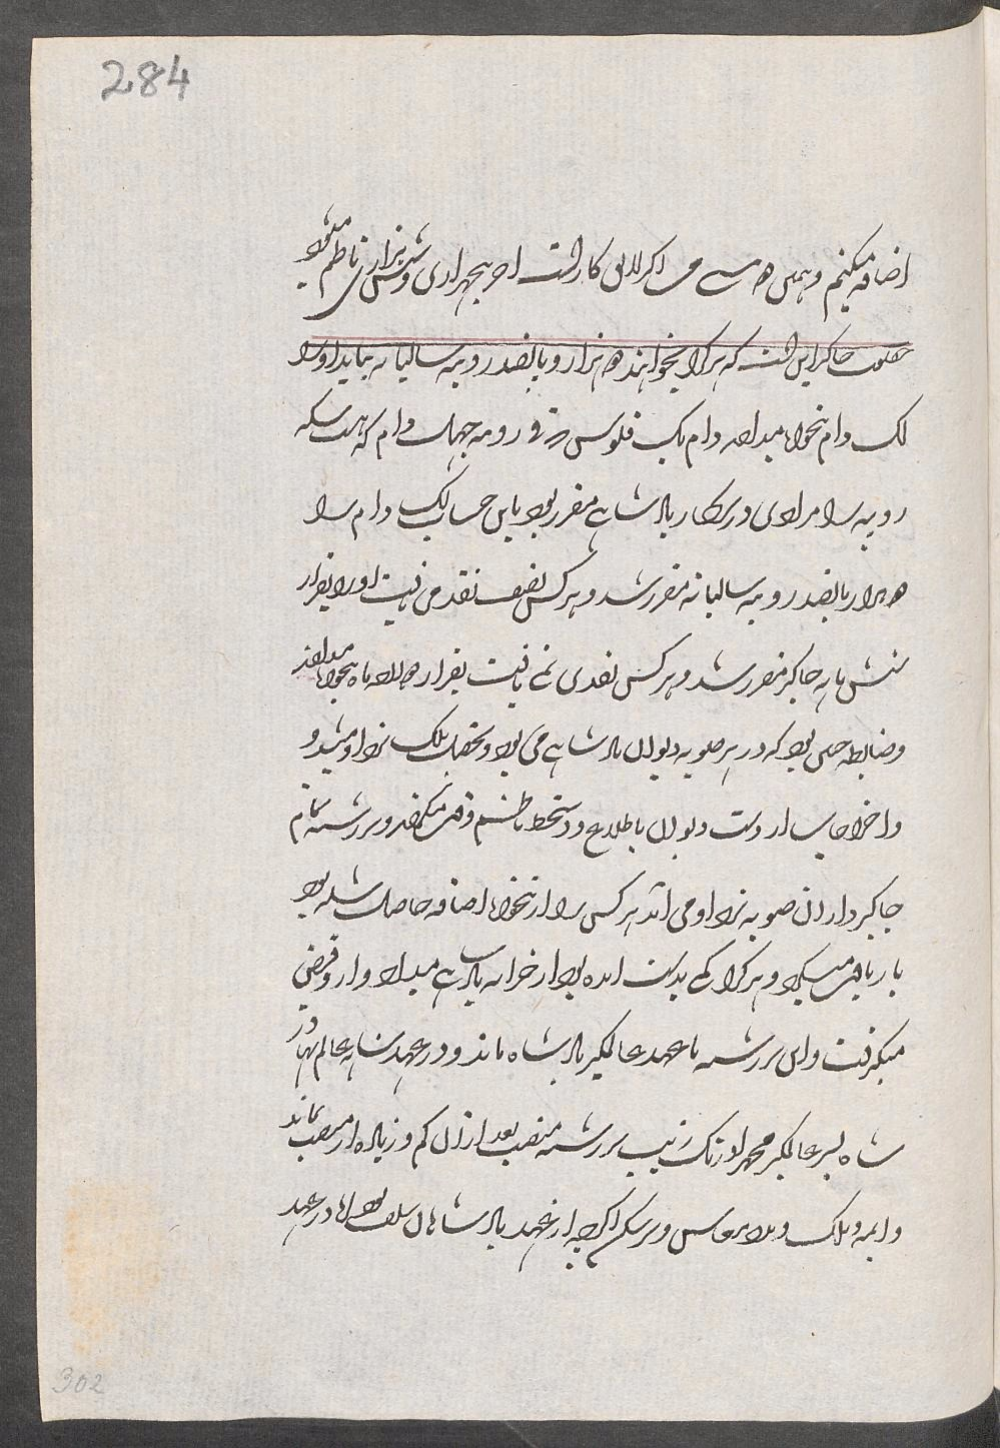 284
اضافه میکنم و همین اگر لائق کار است او پنجهزاری و شش هزاری ناظم میشود
جاگیر این است که هر کرا بخواهند دو هزار و پانصد روپیه سالیانه بیاید او را
لک دام تنخواه میدادند دام یک فلوس و فی روپیه چهل دام که هست سکه
روپیه را مرادی در سرکار پادشاهی مقرر بود باین حساب لک دام را
دو هزار پانصد روپیه سالیانه مقرر شد و هر کس نصف نقد می یافت او را بقرار
شش ماهه جاگیر مقرر شد و هر کس نقدی نمی یافت بقرار ماه تنخواه میدادند
و ضابطه چنین بود که در هر صوبه دیوان پادشاهی می بود و تحصیل ملک نزد او میشد و
و اخراجات از دست دیوان باطلاع و دستخط ناظم میکردند و سررشته تمام
جاگیرداران صوبه نزد او می آمد هر کسی را از تنخواه اضافه حاصل شده بود
باز یافت میکرد و هر کرا کمی بدست آمده بود از خزانه پادشاهی میداد و از و قبض
میگرفت و این سررشته تا عهد عالمگیر پادشاه ماند و در عهد شاه عالم بهادر
شاه پسر عالمگیر محمد اورنگ زیب سررشته منصب بعد ازان کم و زیاده از منصب نماند
و ایمه و ملک و اگرچه از عهد پادشاهان سلف بود اما در عهد
302